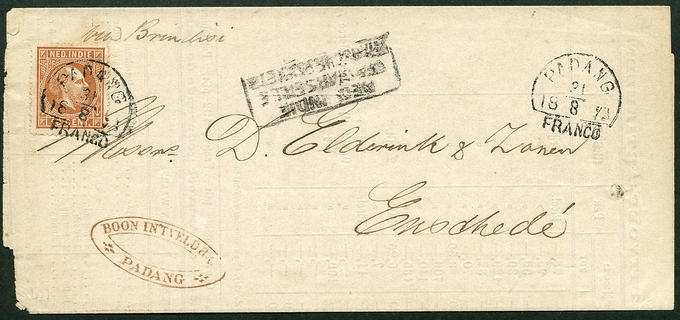 via Brindisi
NED. INDIE
CENT.
PADANG
21
18 8 73
FRANCO
NED. INDIE
PADANG
21
18 8 73
FRANCO
D. Elderink & Zonen
Enschedé
BOON INTVELD &
PADANG